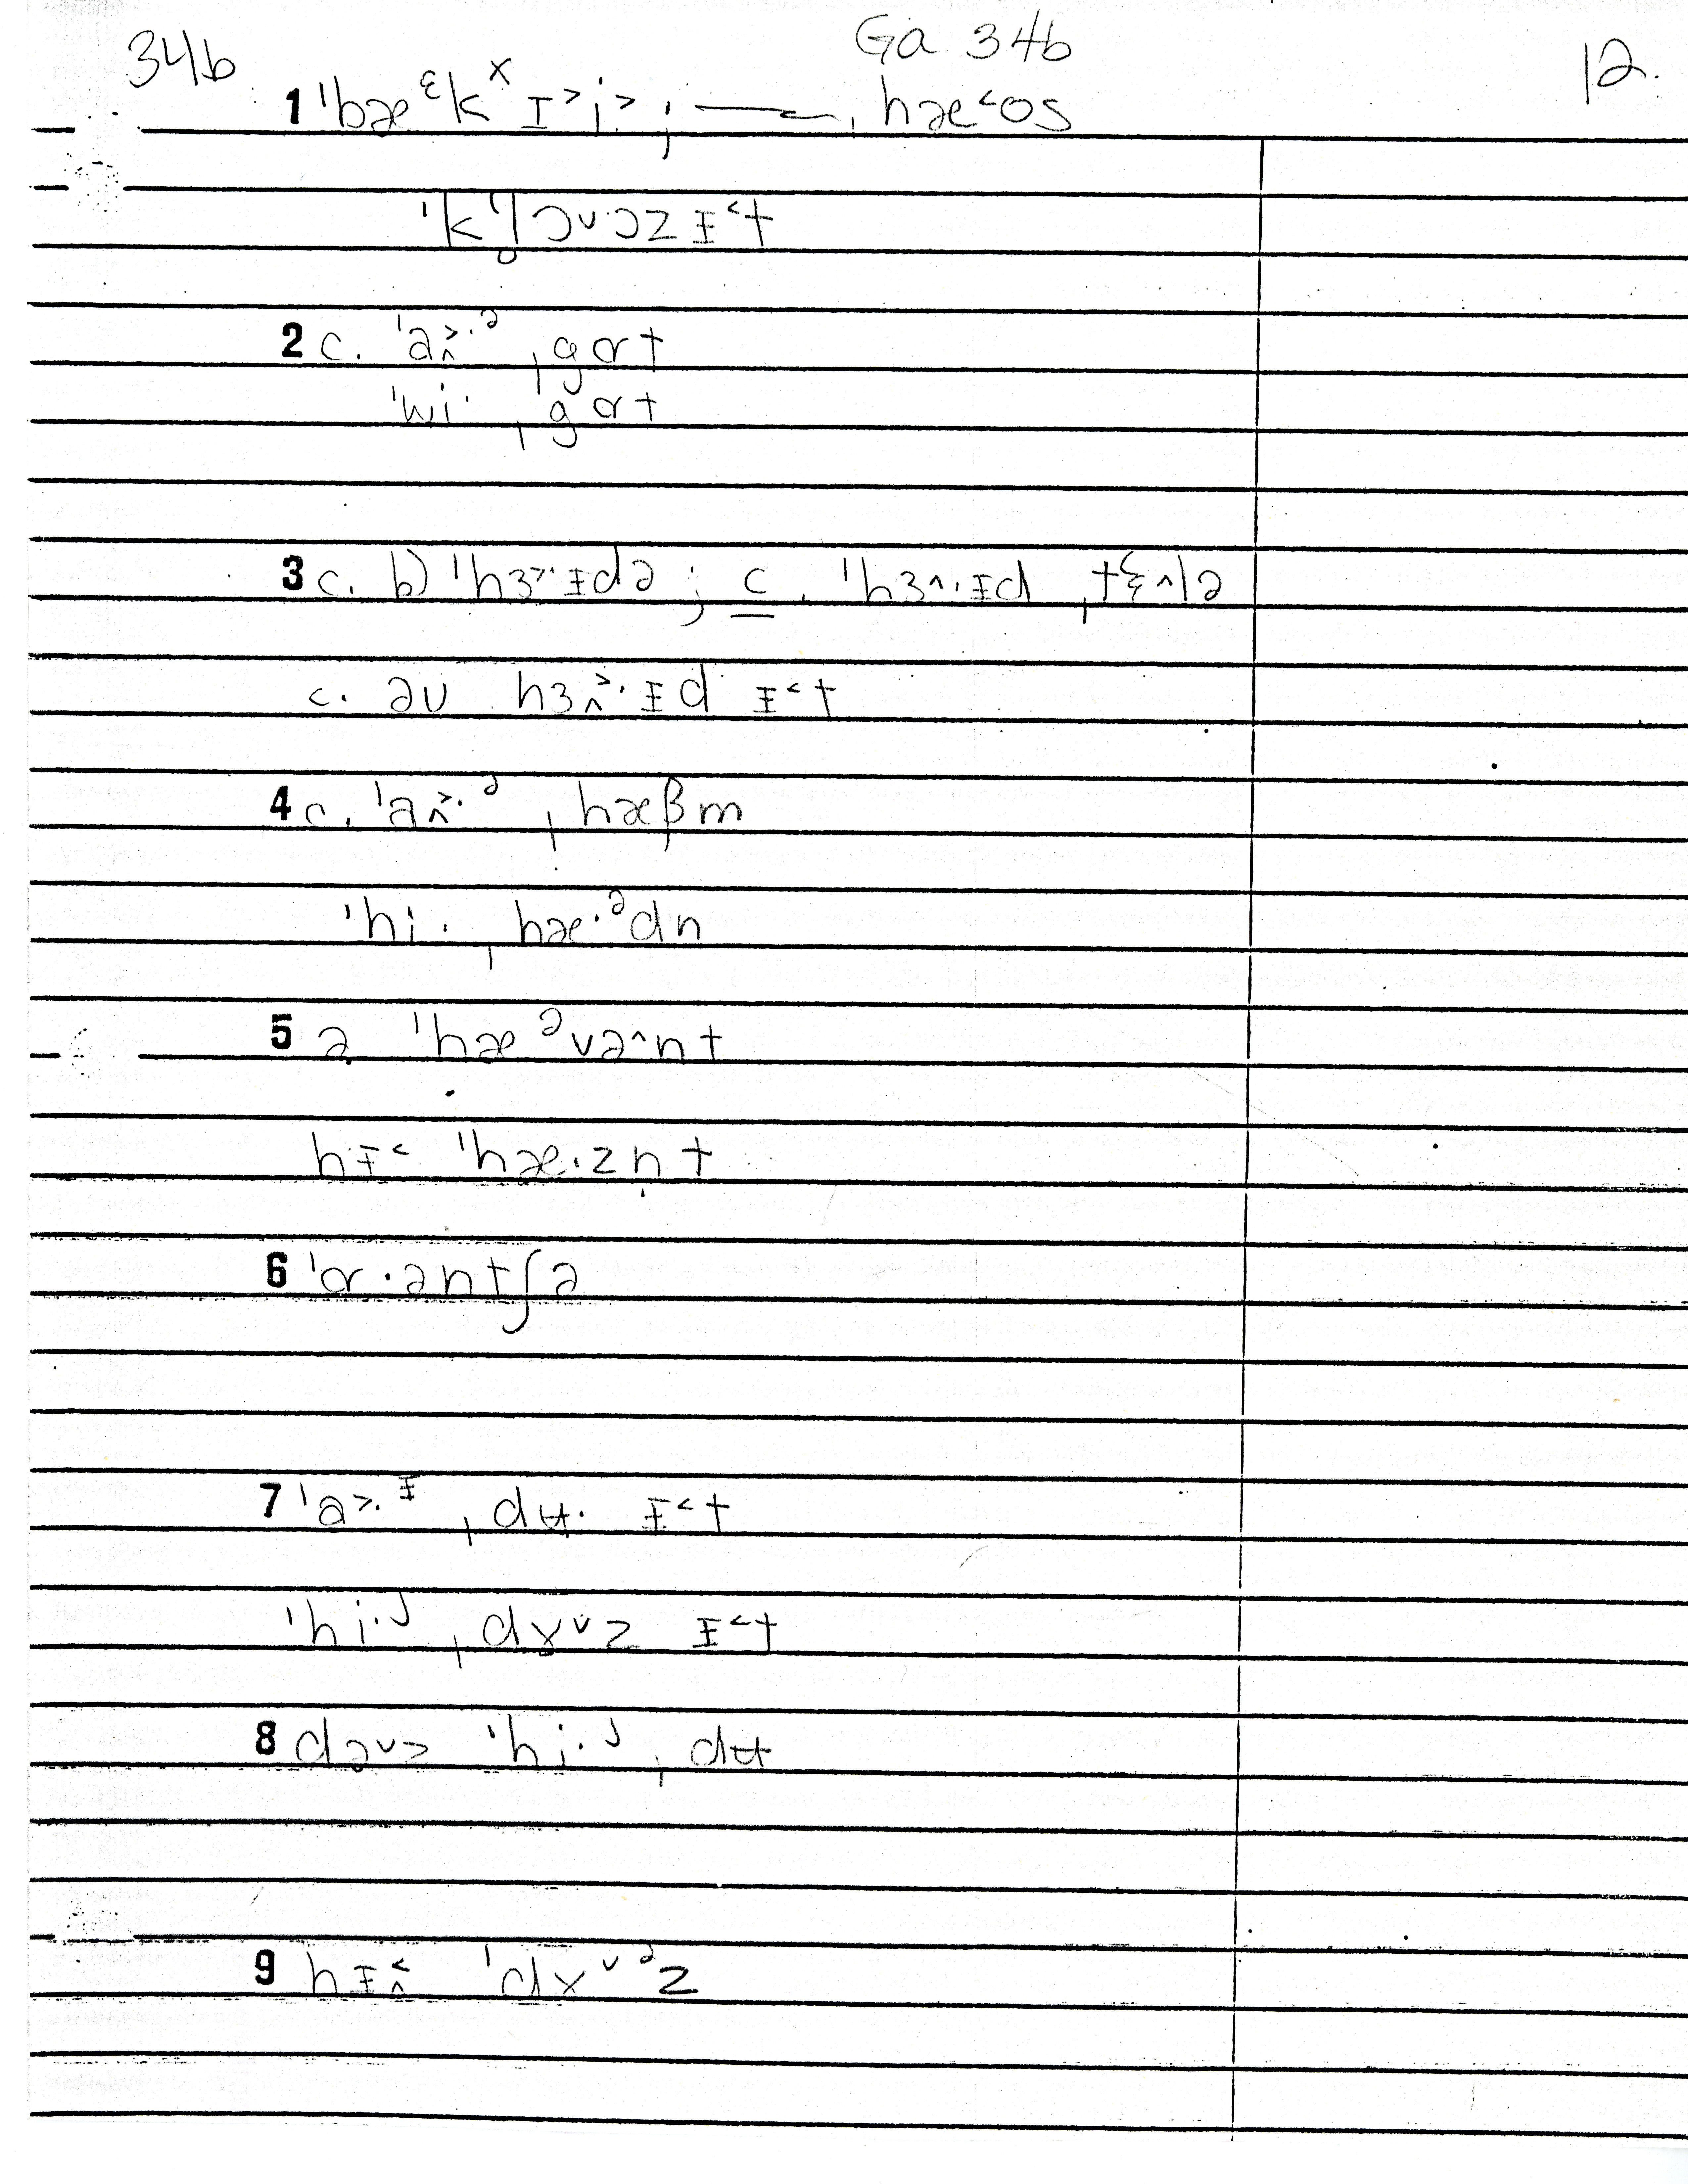 34b Ga 34b 12.
1 ˈbæᵋkˣ ɪ˃i˃ ; ——, hæ˂os
ˈkˈl̥ɔ˅ɔz ɪ˂t
2 c. ˈa˄˃·ᵊ ˌgɑt
ˈwi· ˌgɑt
3 c. b) ˈhɜ˃·ɪdə ; c. ˈhɜ˄·ɪd ˌtɛ˄lə
c. əv hɜ˄˃·ɪd ɪ˂t
4 c. ˈa˄˃·ᵊ ˌhæβm
ˈhi· ˌhæ·ᵊdn
5 a ˈhæᵊvə˄nt
hɪ˂ ˈhæ·zn̩t
6 ˈɑ·əntʃə
7 ˈa˃·ᶦ ˌdʉ· ɪ˂t
ˈhi·ʲ ˌdɤ˅z ɪ˂t
8 də˅z ˈhi·ʲ ˌdʉ
9 hɪ˄˂ ˈdɤ˅ᵊz